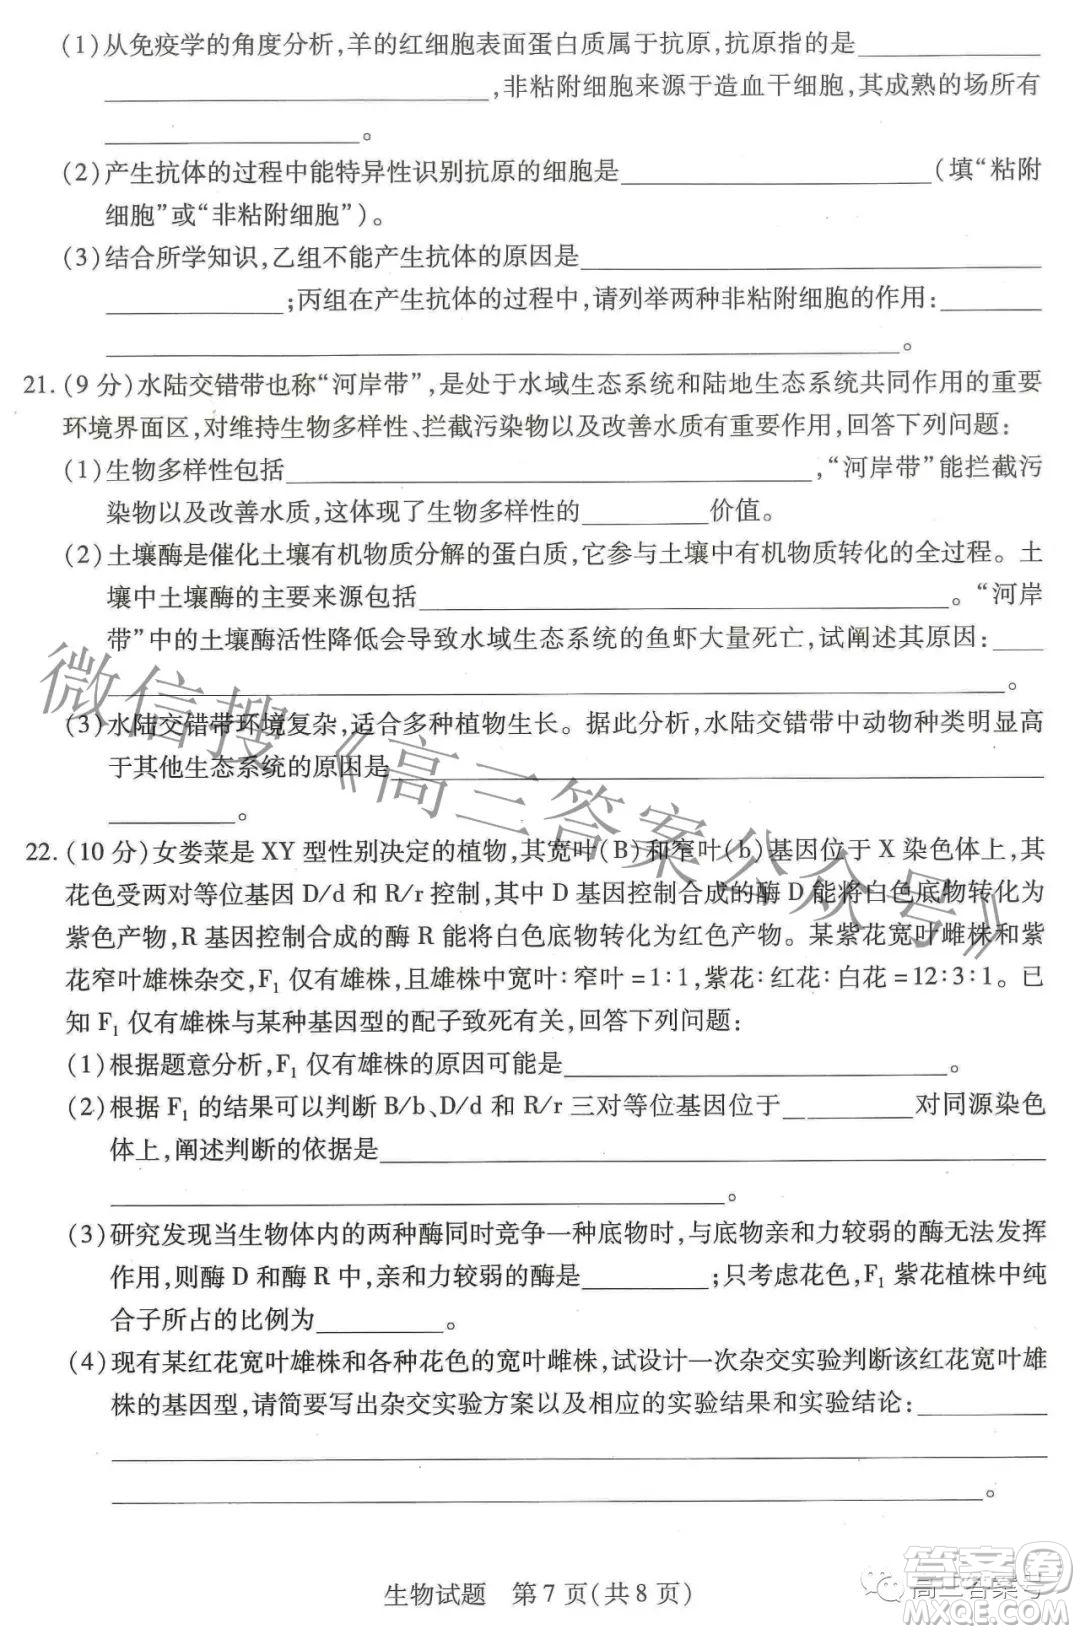 (1)从免疫学的角度分析,羊的红细胞表面蛋白质属于抗原,抗原指的是
,非粘附细胞来源于造血干细胞,其成熟的场所有
。
(2)产生抗体的过程中能特异性识别抗原的细胞是(填“粘附
细胞”或“非粘附细胞”)。
(3)结合所学知识,乙组不能产生抗体的原因是
;丙组在产生抗体的过程中,请列举两种非粘附细胞的作用:
。
21.(9分)水陆交错带也称“河岸带”,是处于水域生态系统和陆地生态系统共同作用的重要
环境界面区,对维持生物多样性、拦截污染物以及改善水质有重要作用,回答下列问题:
(1)生物多样性包括,“河岸带”能拦截污
染物以及改善水质,这体现了生物多样性的价值。
(2)土壤酶是催化土壤有机物质分解的蛋白质,它参与土壤中有机物质转化的全过程。土
壤中土壤酶的主要来源包括。“河岸
带”中的土壤酶活性降低会导致水域生态系统的鱼虾大量死亡,试阐述其原因:
。
(3)水陆交错带环境复杂,适合多种植物生长。据此分析,水陆交错带中动物种类明显高
于其他生态系统的原因是
。
22.(10分)女娄菜是XY型性别决定的植物,其宽叶(B)和窄叶(b)基因位于X染色体上,其
花色受两对等位基因D/d和R/r控制,其中D基因控制合成的酶D能将白色底物转化为
紫色产物,R基因控制合成的酶R能将白色底物转化为红色产物。某紫花宽叶雌株和紫
花窄叶雄株杂交,F₁仅有雄株,且雄株中宽叶:窄叶=1:1,紫花:红花:白花=12:3:1。已
知F₁仅有雄株与某种基因型的配子致死有关,回答下列问题:
(1)根据题意分析,F₁仅有雄株的原因可能是。
(2)根据F₁的结果可以判断B/b、D/d和R/r三对等位基因位于对同源染色
体上,阐述判断的依据是
。
(3)研究发现当生物体内的两种酶同时竞争一种底物时,与底物亲和力较弱的酶无法发挥
作用,则酶D和酶R中,亲和力较弱的酶是;只考虑花色,F₁紫花植株中纯
合子所占的比例为。
(4)现有某红花宽叶雄株和各种花色的宽叶雌株,试设计一次杂交实验判断该红花宽叶雄
株的基因型,请简要写出杂交实验方案以及相应的实验结果和实验结论:
。
生物试题 第7页(共8页)
微信搜《高三答案公众号》
高三答案号
答案圈
MXQE.COM